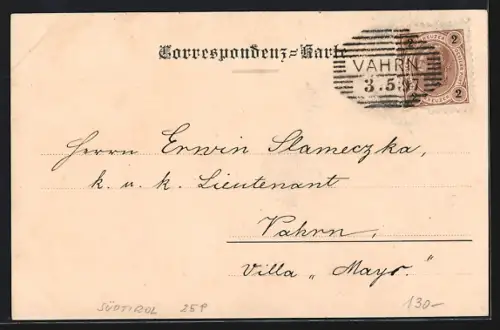 Correspondenz-Karte
VAHRN
3.5.97
2 2
2
Herrn Erwin Slameczka,
k. u. k. Lieutenant
Vahrn,
Villa „Mayr."
SÜDTIROL 25P 130-